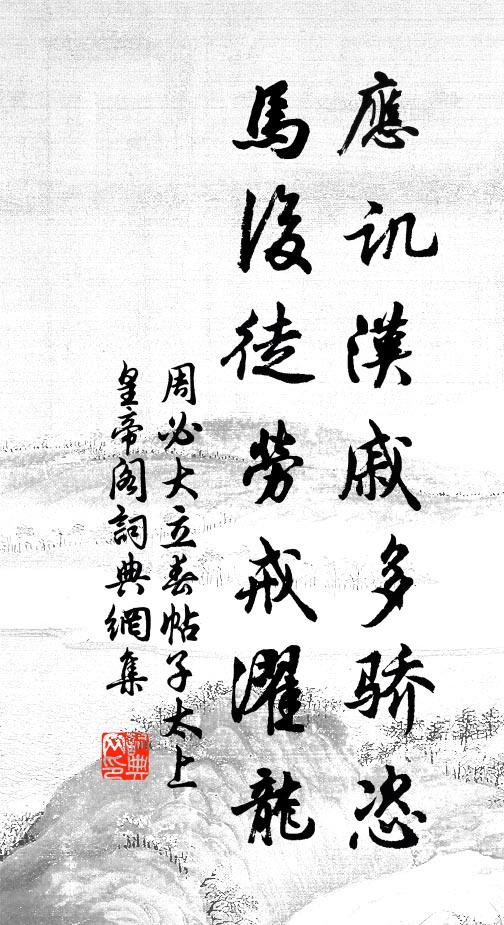 應讥漢戚多骄恣
馬後徒勞戒濯龍
周必大立春帖子太上
皇帝阁詞典網集